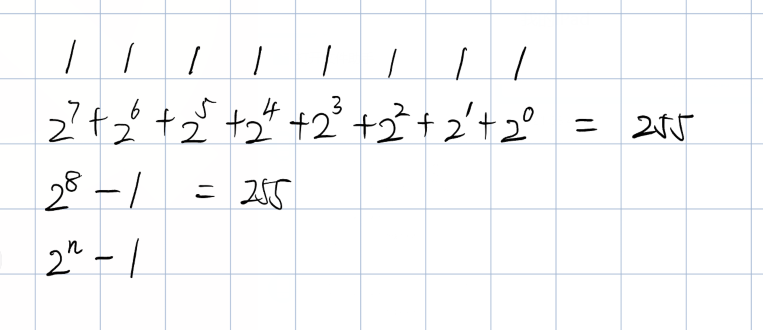 1 1 1 1 1 1 1 1
2⁷+2⁶+2⁵+2⁴+2³+2²+2¹+2⁰ = 255
2⁸-1 = 255
2ⁿ-1